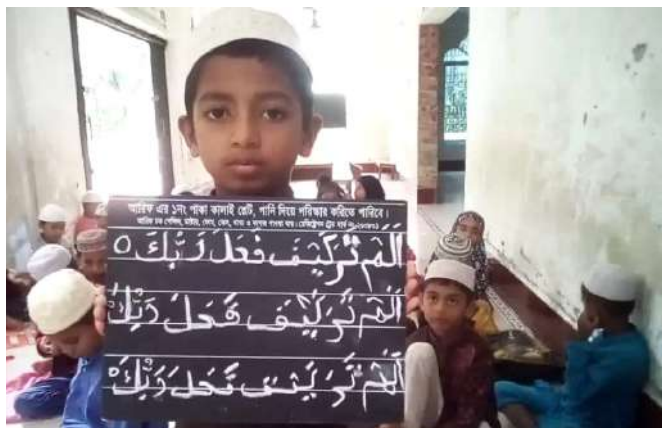 আরিফ এর ১নং পাকা কালাই স্লেট, পানি দিয়ে পরিষ্কার করিতে পারিবে।
اَلَمْ تَرَكَيْفَ فَعَلَ رَبُّكَ ○
اَلَمْ تَرَ كَيْفَ فَعَلَ رَبُّكَ ○
اَلَمْ تَرَ كَيْفَ فَعَلَ رَبُّكَ ○